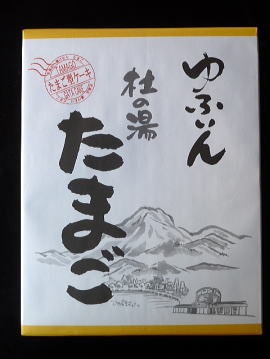 ゆふいん
杜の湯
たまご
TAMAGO
たまご型ケーキ